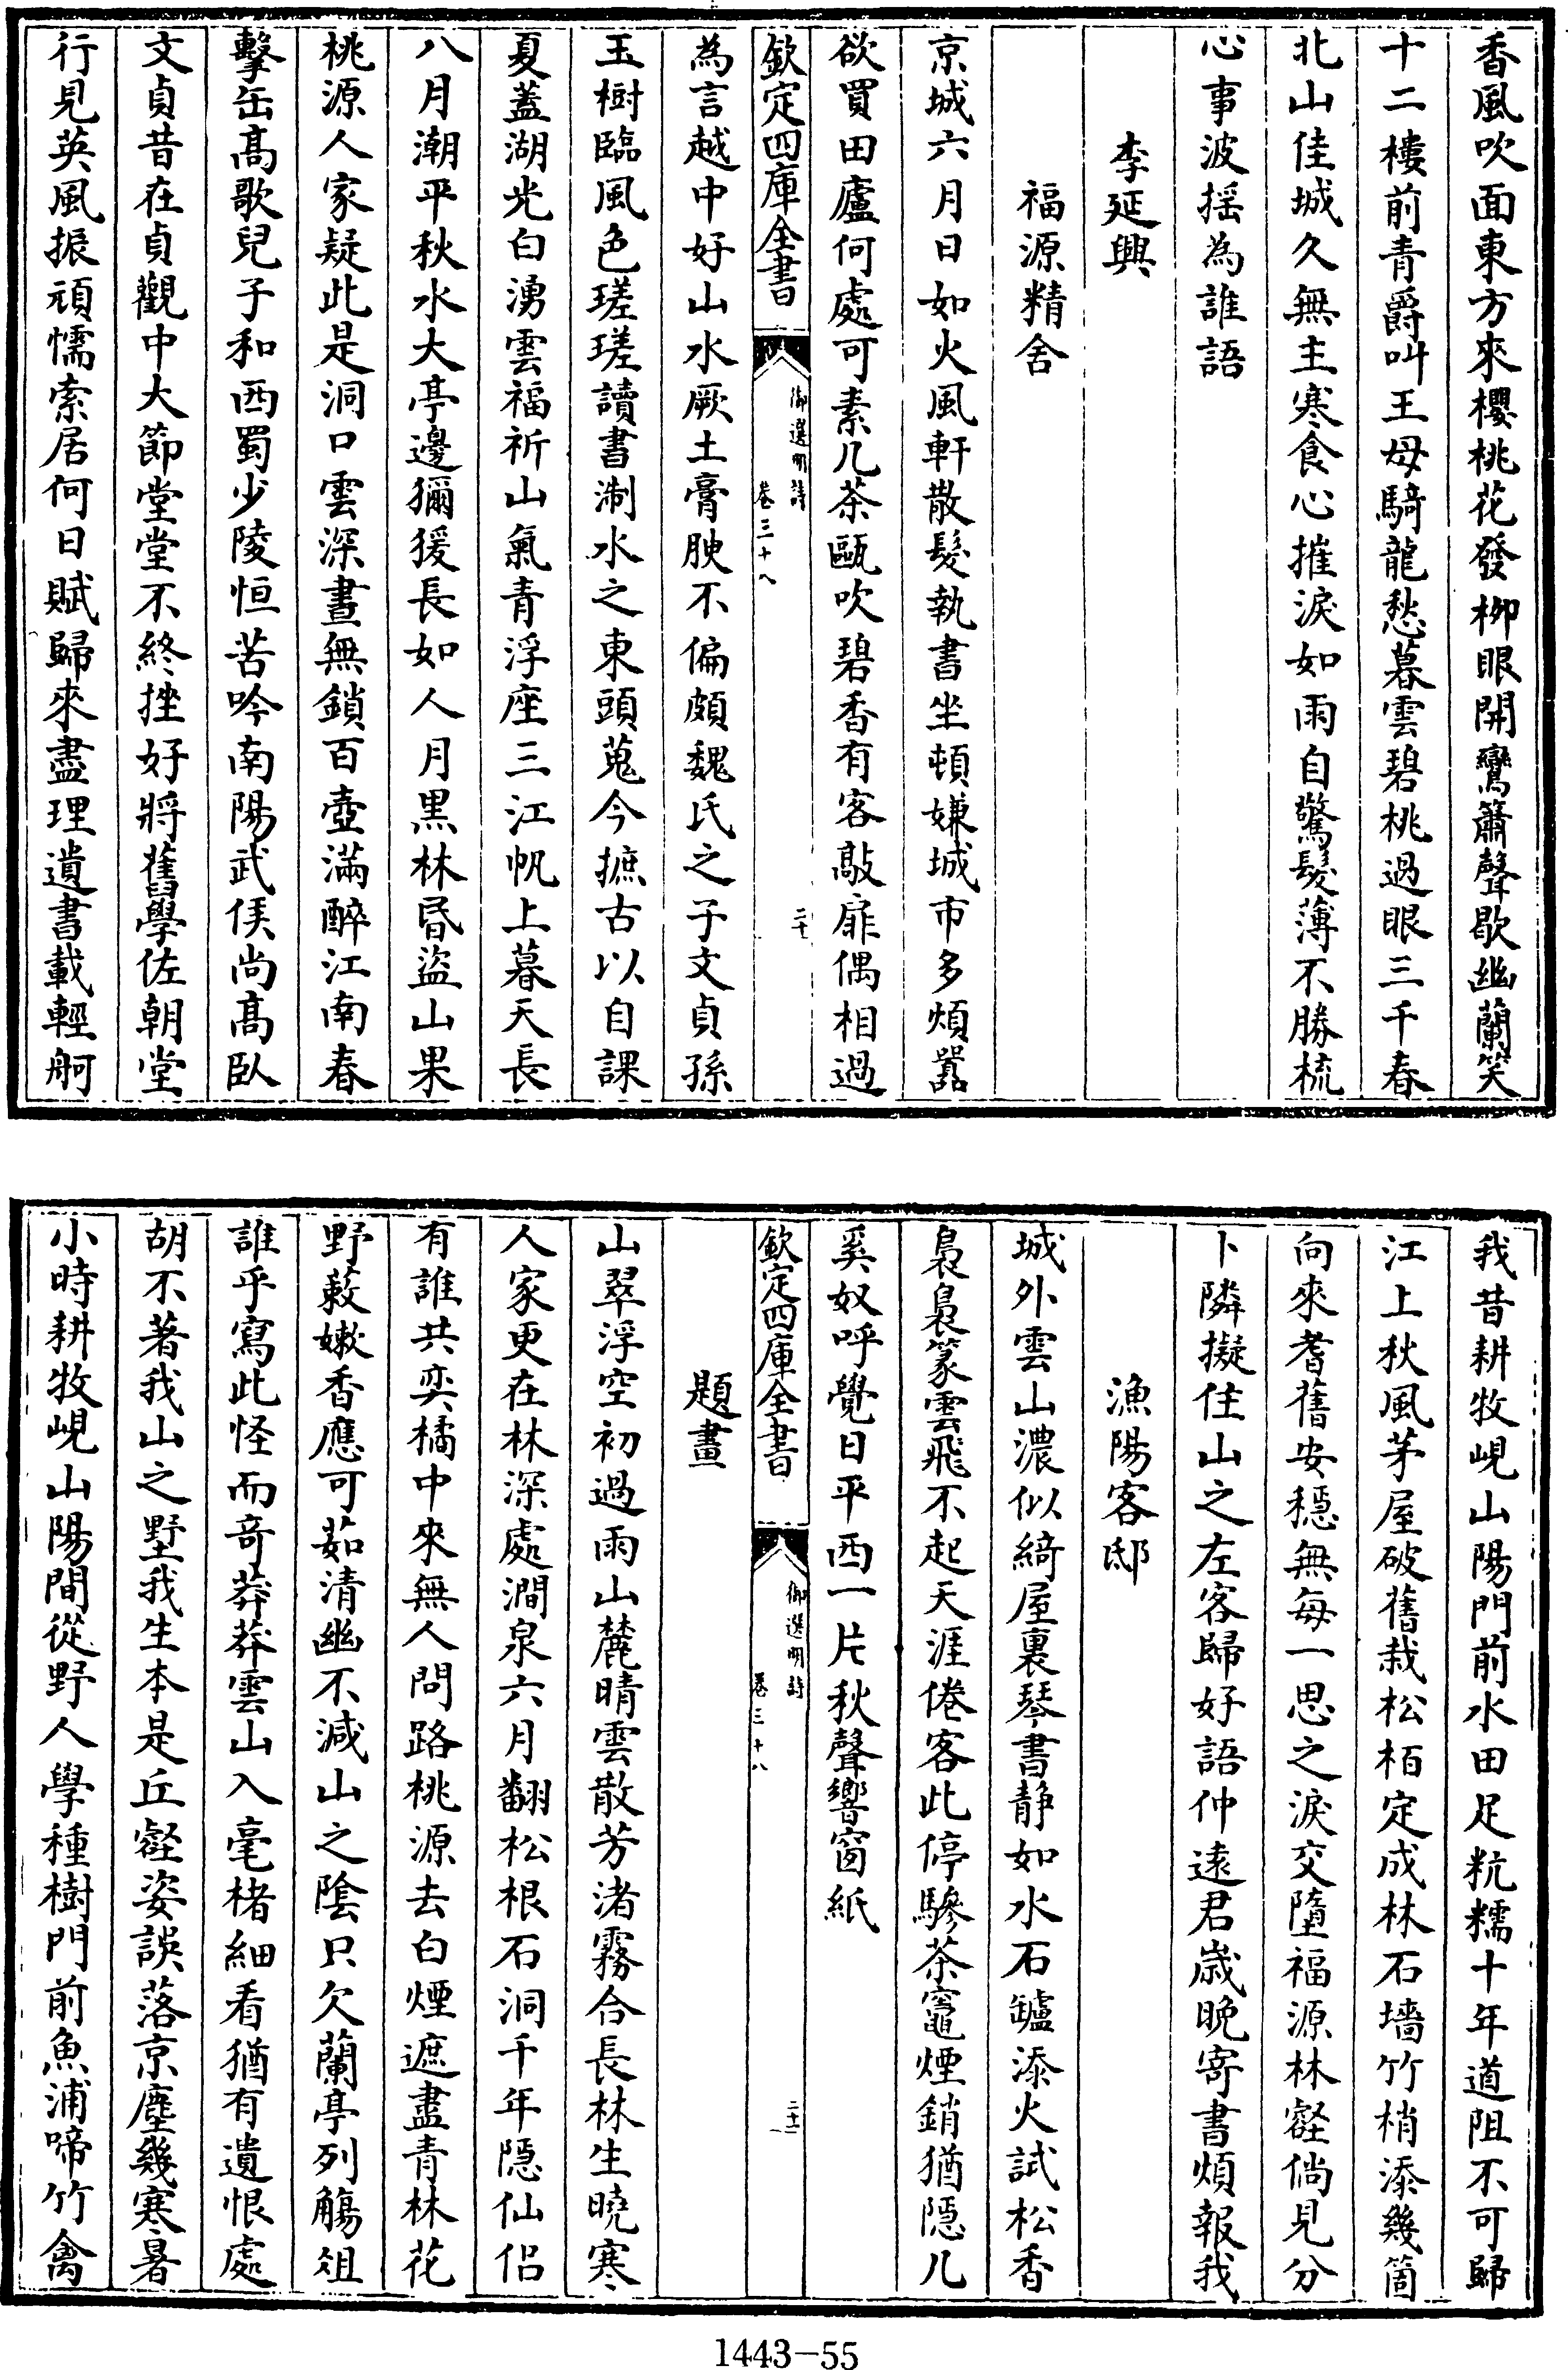 香風吹面東方來櫻桃花發柳眼開鸞簫聲歇幽蘭笑
十二樓前青爵叫王母騎龍愁暮雲碧桃過眼三千春
北山佳城久無主寒食心摧淚如雨自驚髮薄不勝梳
心事波揺為誰語
李延興
福源精舍
京城六月日如火風軒散髮執書坐頓嫌城市多煩囂
欲買田廬何處可素几茶甌吹碧香有客敲扉偶相過
欽定四庫全書
御選明詩
卷三十八
二十
為言越中好山水厥土膏腴不偏頗魏氏之子文貞孫
玉樹臨風色瑳瑳讀書淛水之東頭蒐今摭古以自課
夏蓋湖光白湧雲福祈山氣青浮座三江帆上暮天長
八月潮平秋水大亭邊獼猨長如人月黒林昏盜山果
桃源人家疑此是洞口雲深晝無鎖百壺滿醉江南春
擊缶髙歌兒子和西蜀少陵恒苦吟南陽武侯尚髙臥
文貞昔在貞觀中大節堂堂不終挫好將舊學佐朝堂
行見英風振頑懦索居何日賦歸來盡理遺書載輕舸
我昔耕牧峴山陽門前水田足秔糯十年道阻不可歸
江上秋風茅屋破舊栽松栢定成林石墻竹梢添幾箇
向來耆舊安穩無每一思之淚交墮福源林壑倘見分
卜隣擬住山之左客歸好語仲遠君嵗晚寄書煩報我
漁陽客邸
城外雲山濃似綺屋裏琴書静如水石罏添火試松香
裊裊篆雲飛不起天涯倦客此停驂茶竈煙銷猶隠几
奚奴呼覺日平西一片秋聲響窗紙
欽定四庫全書
御選明詩
卷三十八
二十一
題畫
山翠浮空初過雨山麓晴雲散芳渚霧合長林生曉寒
人家更在林深處澗泉六月翻松根石洞千年隠仙侶
有誰共奕橘中來無人問路桃源去白煙遮盡青林花
野蔌嫩香應可茹清幽不減山之陰只欠蘭亭列觴俎
誰乎寫此怪而竒莽莽雲山入毫楮細看猶有遺恨處
胡不著我山之墅我生本是丘壑姿誤落京塵幾寒暑
小時耕牧峴山陽間從野人學種樹門前魚浦啼竹禽
1443-55